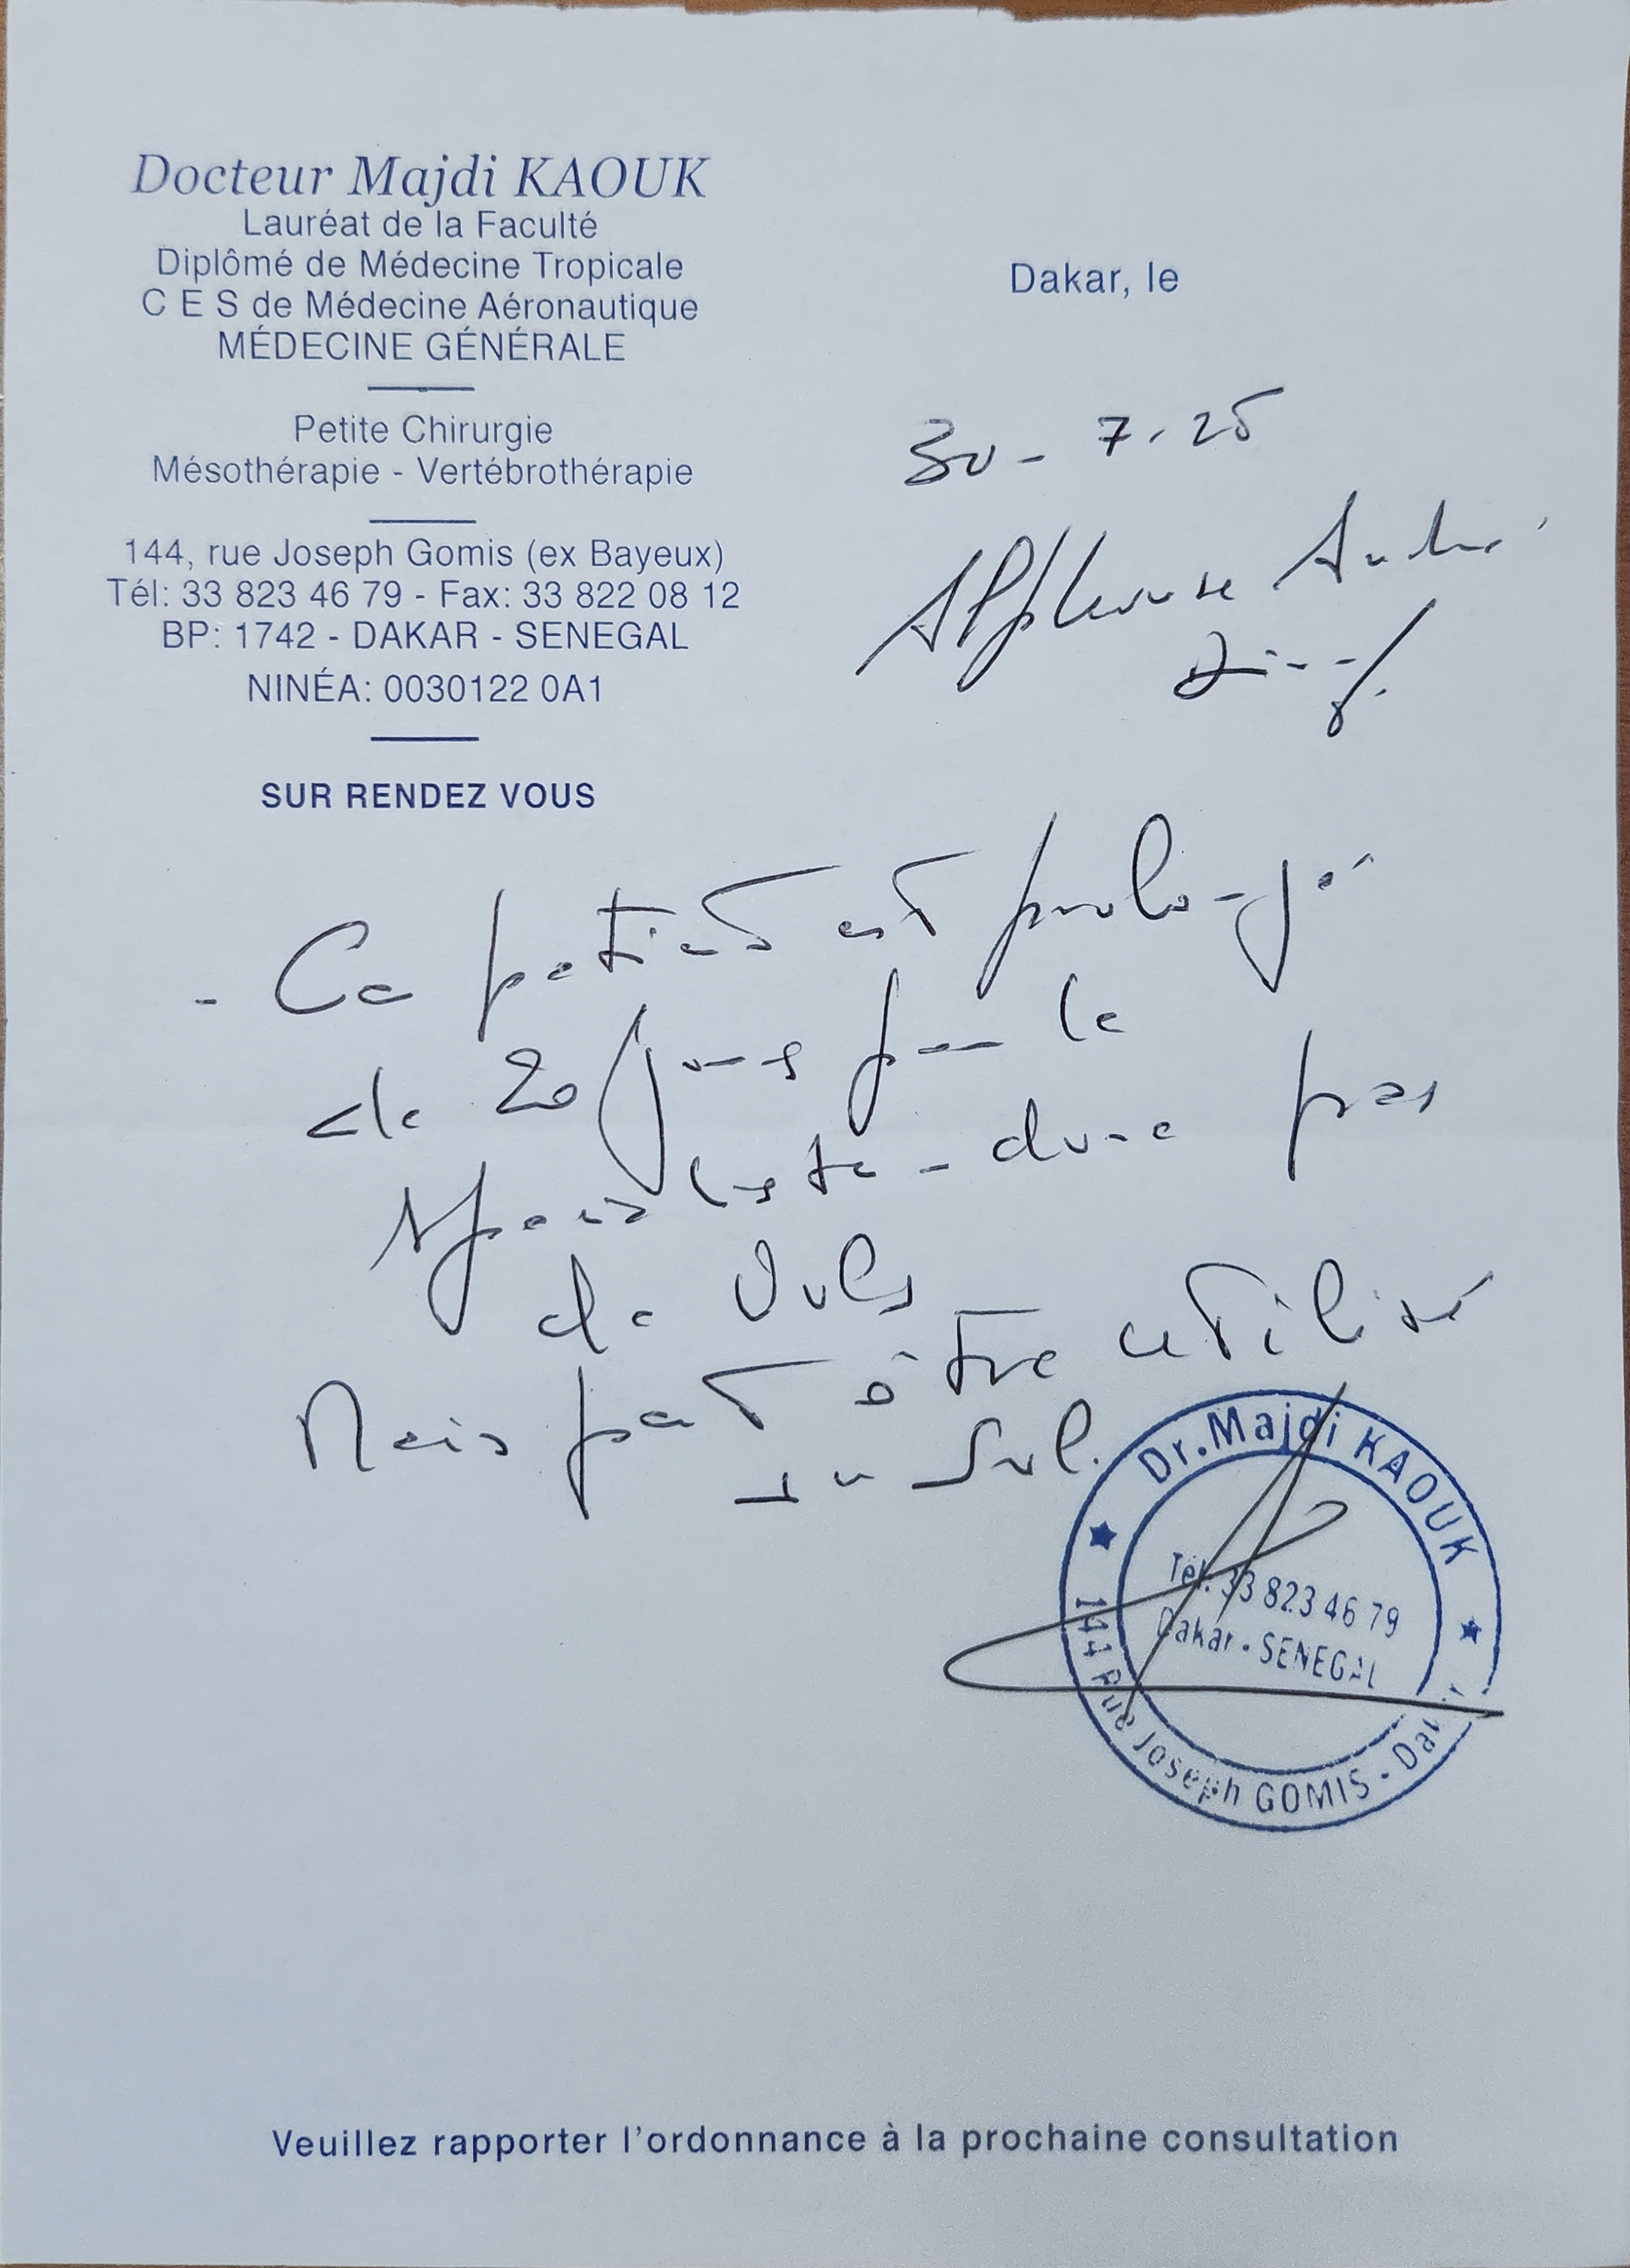 Docteur Majdi KAOUK
Lauréat de la Faculté
Diplômé de Médecine Tropicale
C E S de Médecine Aéronautique
MÉDECINE GÉNÉRALE
Petite Chirurgie
Mésothérapie - Vertébrothérapie
144, rue Joseph Gomis (ex Bayeux)
Tél: 33 823 46 79 - Fax: 33 822 08 12
BP: 1742 - DAKAR - SENEGAL
NINÉA: 0030122 0A1
SUR RENDEZ VOUS
Dakar, le
30 - 7.25
Alphonse André
- Ce patient est prolongé
de 20 jours par le
spécialiste - donc pas
de vols
Mais peut être utilisé
au sol.
Dr. Majdi KAOUK
Tél. 33 823 46 79
Dakar - SENEGAL
144 Rue Joseph GOMIS - Dakar
Veuillez rapporter l'ordonnance à la prochaine consultation